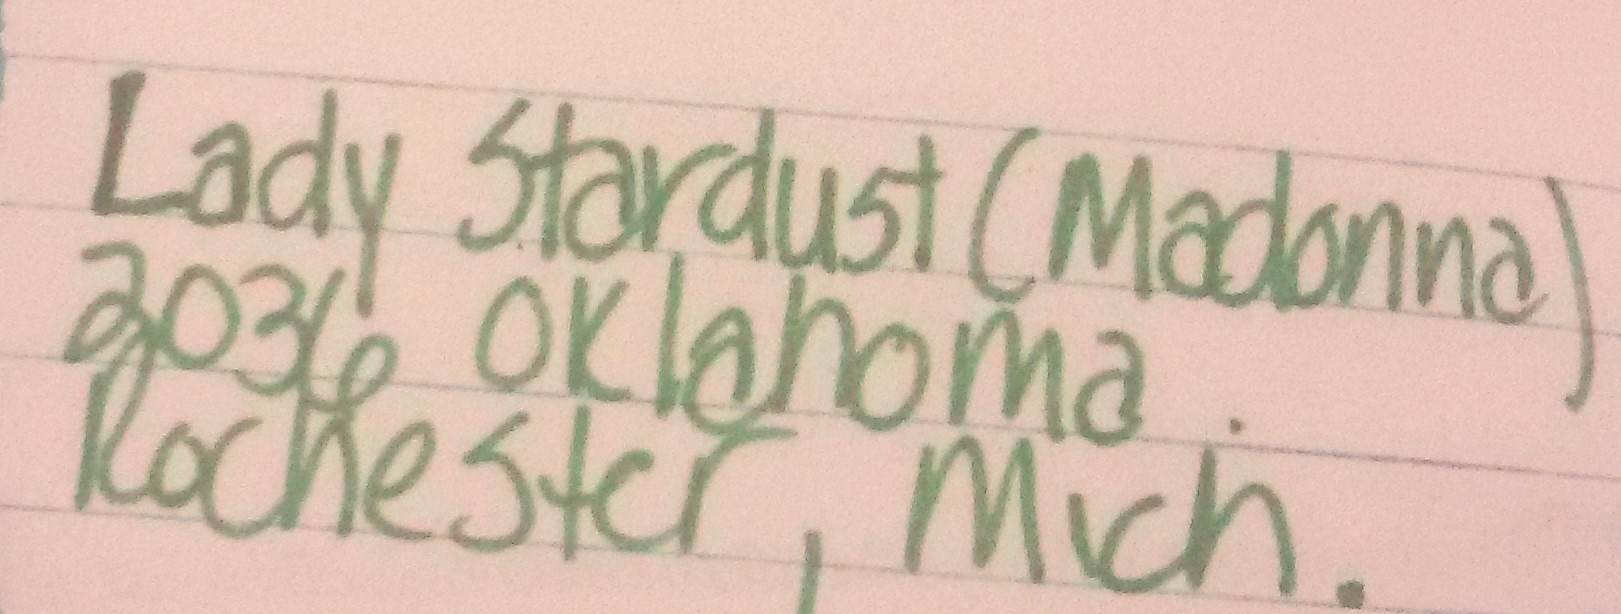 Lady Stardust (Madonna)
2036 Oklahoma.
Rochester, Mich.